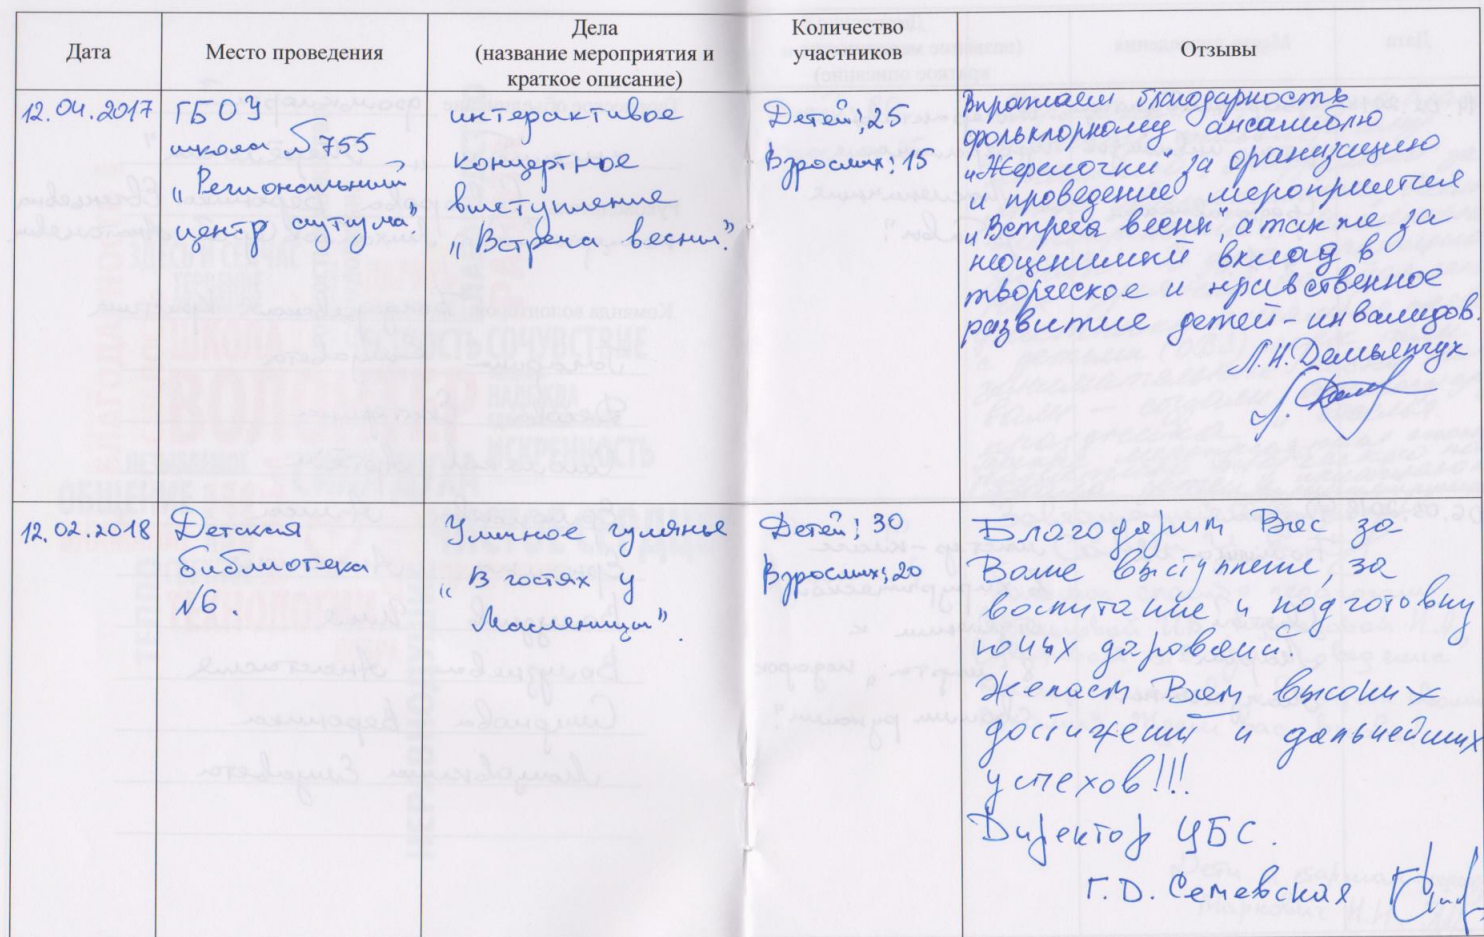 Дата
Место проведения
Дела
(название мероприятия и
краткое описание)
Количество
участников
Отзывы
12.04.2017
ГБОУ
школа №755
„Региональный
центр аутизма".
интерактивое
концертное
выступление
„Встреча весны."
Детей: 25
Взрослых: 15
Выражаем благодарность
фольклорному ансамблю
„Жерелочки" за организацию
и проведение мероприятия
„Встреча весны", а также за
неоценимый вклад в
творческое и нравственное
развитие детей-инвалидов.
Л.Н. Демьянчук
12.02.2018
Детская
библиотека
№6.
Уличное гулянье
„В гостях у
Масленицы".
Детей: 30
Взрослых: 20
Благодарим Вас за
Ваше выступление, за
воспитание и подготовку
юных дарований.
Желаем Вам высоких
достижений и дальнейших
успехов!!!
Директор ЦБС.
Г.О. Семевская